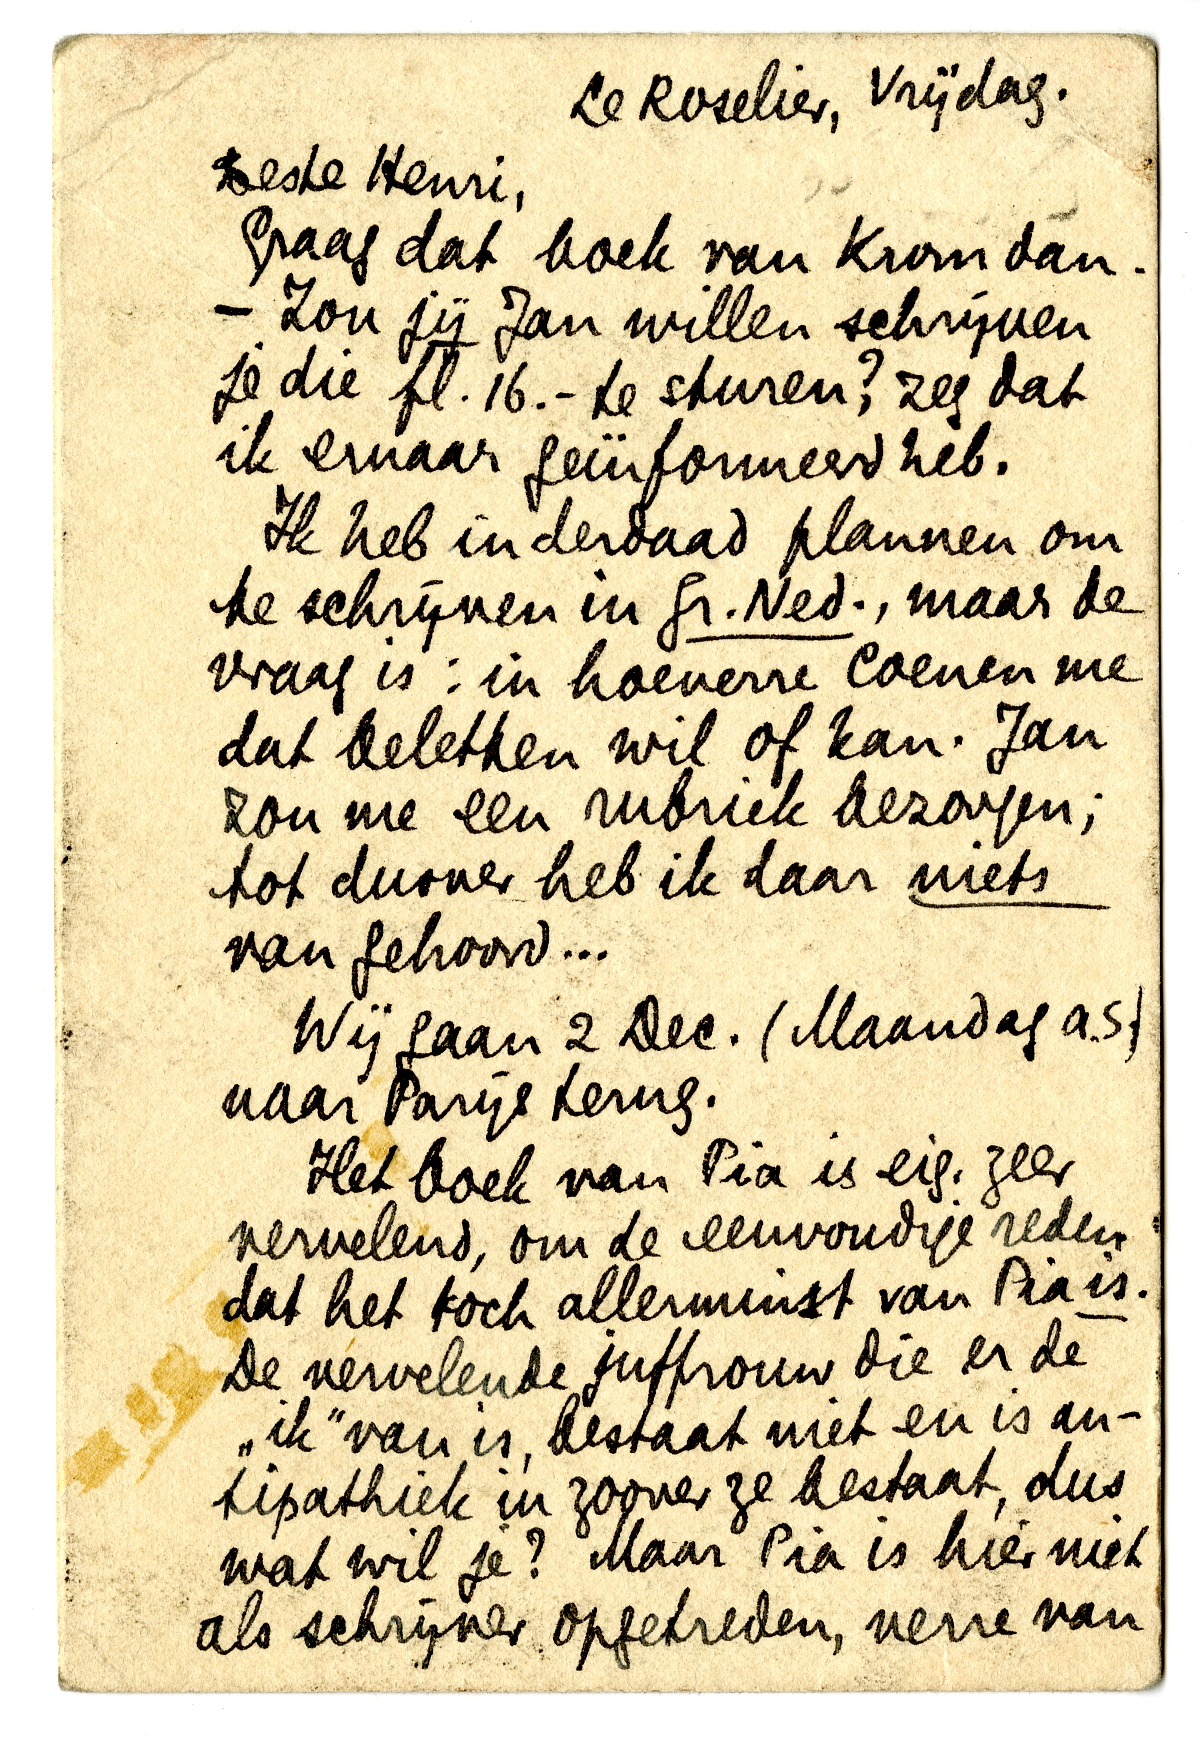 Le Roselier, Vrijdag.
Beste Henri,
Graag dat boek van Krom dan.
– Zou jij Jan willen schrijven
je die fl. 16.- te sturen? Zeg dat
ik ernaar geïnformeerd heb.
Ik heb inderdaad plannen om
te schrijven in Gr. Ned., maar de
vraag is: in hoeverre Coenen me
dat beletten wil of kan. Jan
zou me een rubriek bezorgen;
tot dusver heb ik daar niets
van gehoord...
Wij gaan 2 Dec. (Maandag a.s.)
naar Parijs terug.
Het boek van Pia is eig. zeer
vervelend, om de eenvoudige reden
dat het toch allerminst van Pia is.
De vervelende juffrouw die er de
„ik” van is, bestaat niet en is an-
tipathiek in zoover ze bestaat, dus
wat wil je? Maar Pia is hier niet
als schrijver opgetreden, verre van